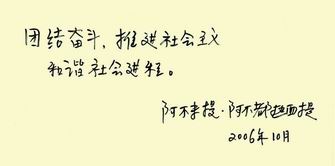 团结奋斗，推进社会主义
和谐社会进程。
阿不来提·阿不都热西提
2006年10月